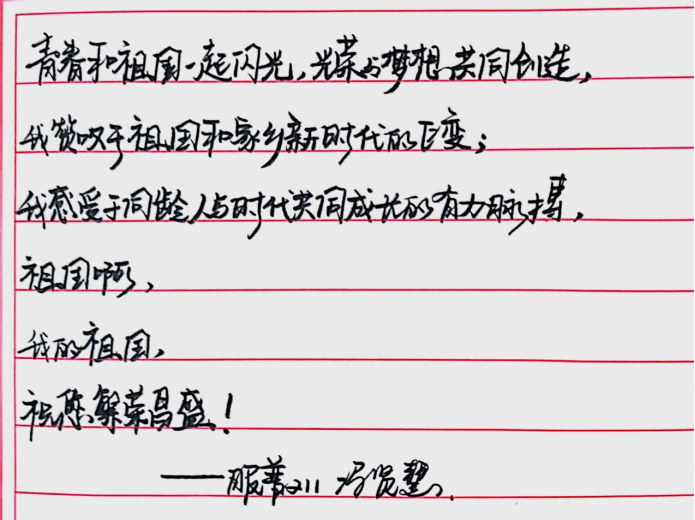 青春和祖国一起闪光,光荣与梦想共同创造,
我赞叹于祖国和家乡新时代的巨变;
我感受于同龄人与时代共同成长的有力脉搏,
祖国啊,
我的祖国,
祝您繁荣昌盛!
——服装211 冯贤慧